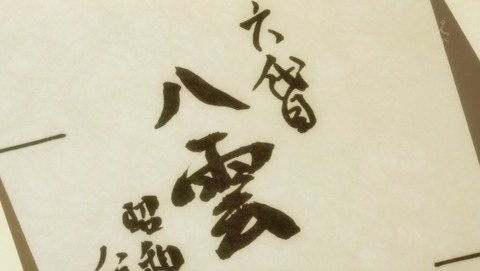 六代目
八雲
昭和